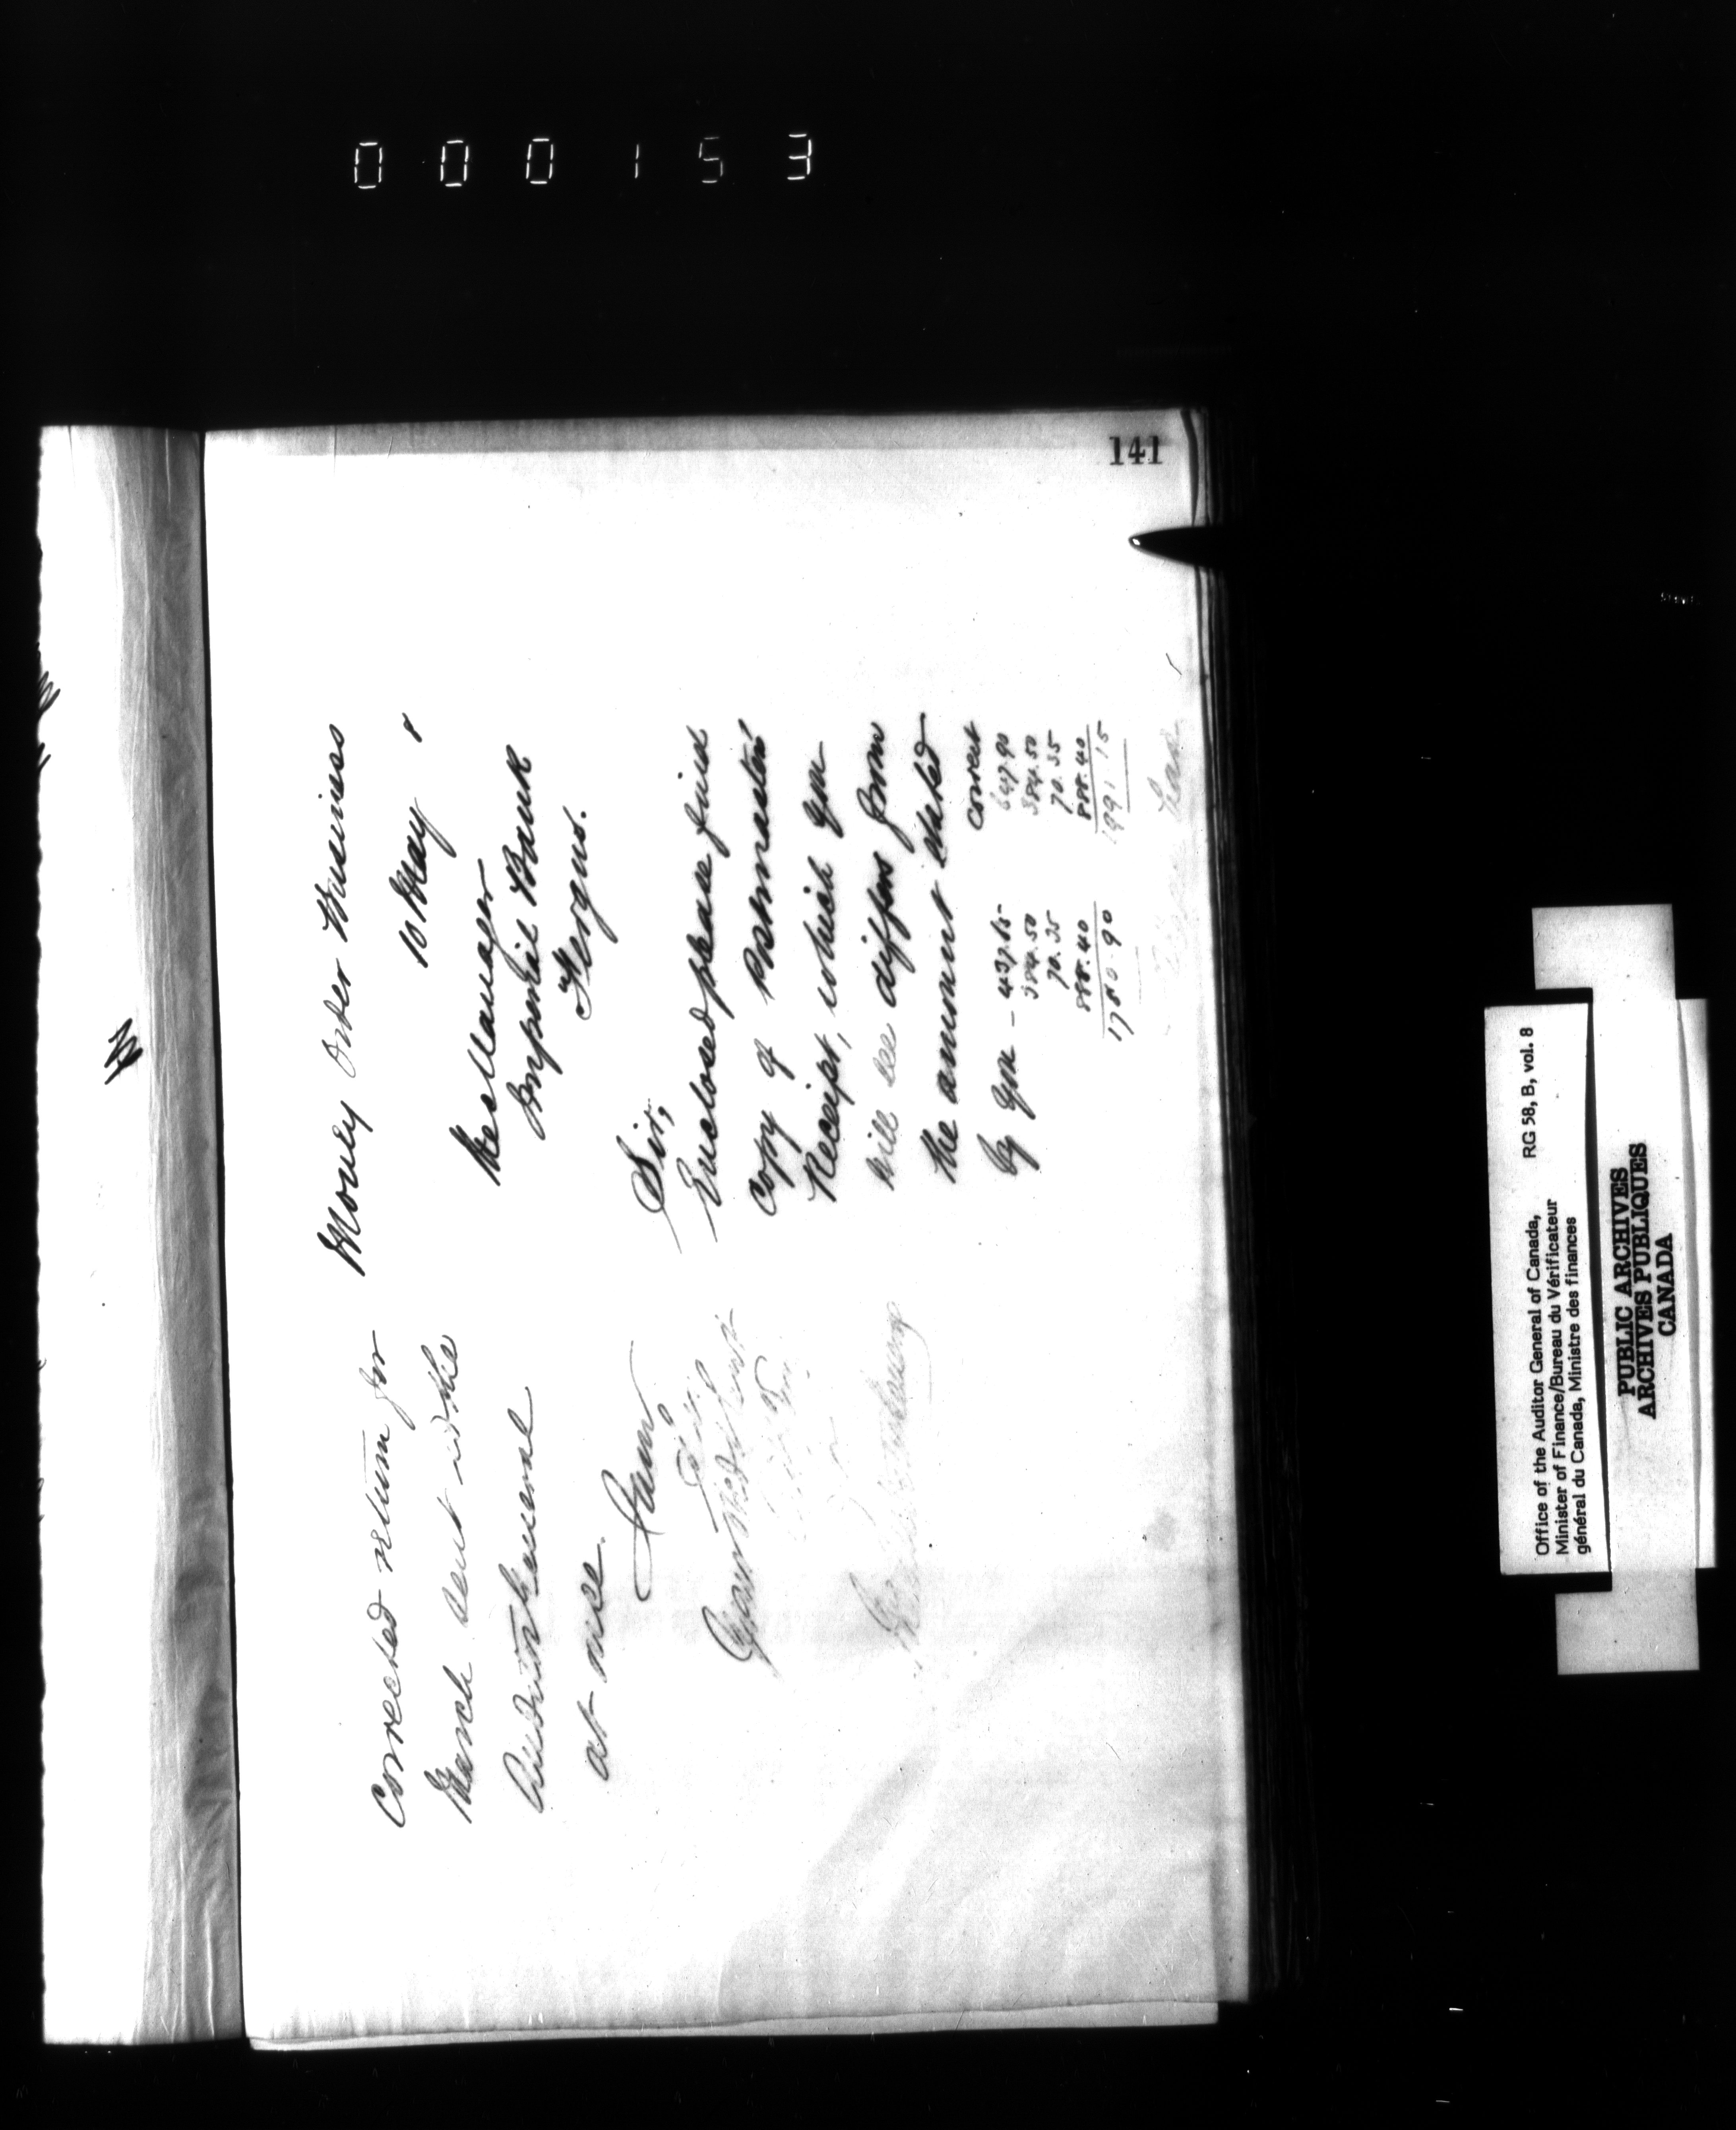 000153
141
Money Order Business
10 May 8
The Manager
Imperial Bank
Fergus.
Sir,
Enclosed please find
copy of Postmasters
Receipt, which you
will see differs from
the amount stated
by you — 437.65 correct 647.90
384.50 384.50
70.35 70.35
888.40 888.40
1780.90 1991 15
Corrected return for
March sent to the
Auditor General
at once.
I am
Sir
Your obedient
Office of the Auditor General of Canada,
Minister of Finance/Bureau du Vérificateur
général du Canada, Ministre des finances
RG 58, B, vol. 8
PUBLIC ARCHIVES
ARCHIVES PUBLIQUES
CANADA